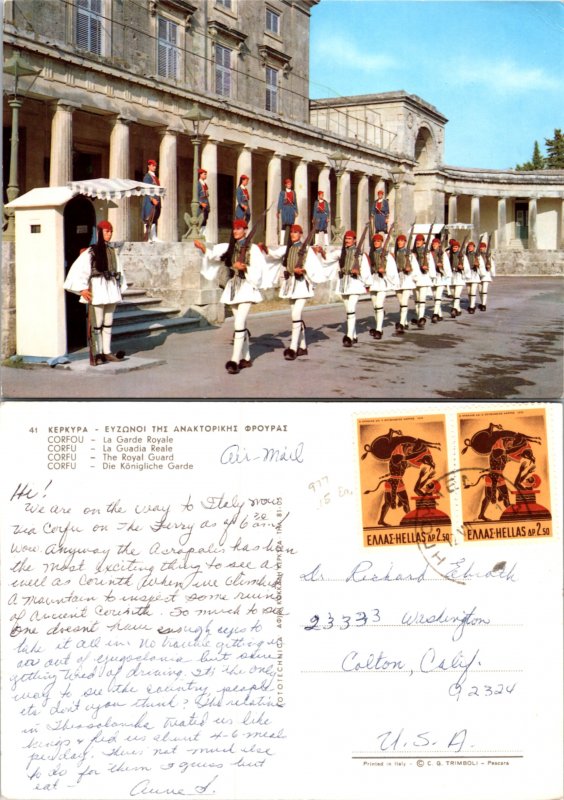 41 ΚΕΡΚΥΡΑ - ΕΥΖΩΝΟΙ ΤΗΣ ΑΝΑΚΤΟΡΙΚΗΣ ΦΡΟΥΡΑΣ
CORFOU - La Garde Royale
CORFU - La Guadia Reale
CORFU - The Royal Guard
CORFU - Die Königliche Garde
Air Mail
Hi!
We are on the way to Italy now
via Corfu on the ferry as of 6 am
Wow. Anyway the Acropolis has been
the most exciting thing to see as
well as Corinth when we climbed
a mountain to inspect some ruins
of Ancient Corinth. So much to see
one doesnt have enough eyes to
take it all in. No trouble getting
out of Yugoslavia but
getting tired of driving. It's the only
way to see the country, people,
etc. don't you think? The relatives
in Thessalonika treated us like
kings & fed us about 4-6 meals
per day. There's not much else
to do for them I guess but
eat -
Anne S.
ΕΛΛΑΣ-HELLAS ΔΡ 2.50
ΕΛΛΑΣ-HELLAS ΔΡ 2.50
Dr. Richard
23333 Washington
Colton, Calif.
92324
U.S.A.
Printed in Italy - © C. G. TRIMBOLI - Pescara